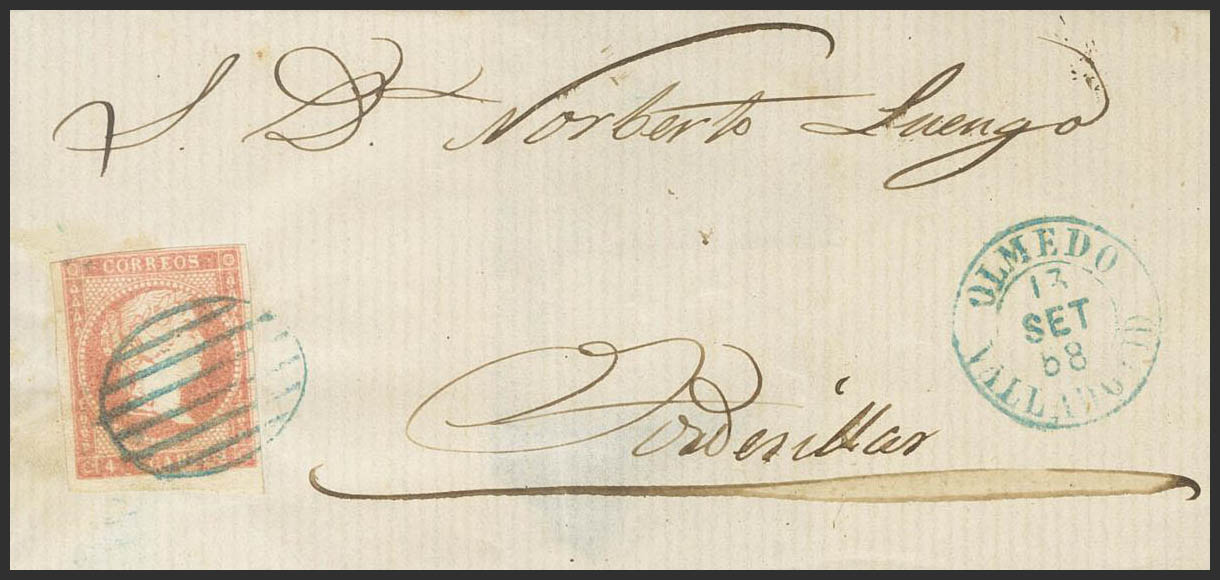 S. D. Norberto Luengo
CORREOS
OLMEDO
13
SET
68
VALLADOLID
Tordesillas